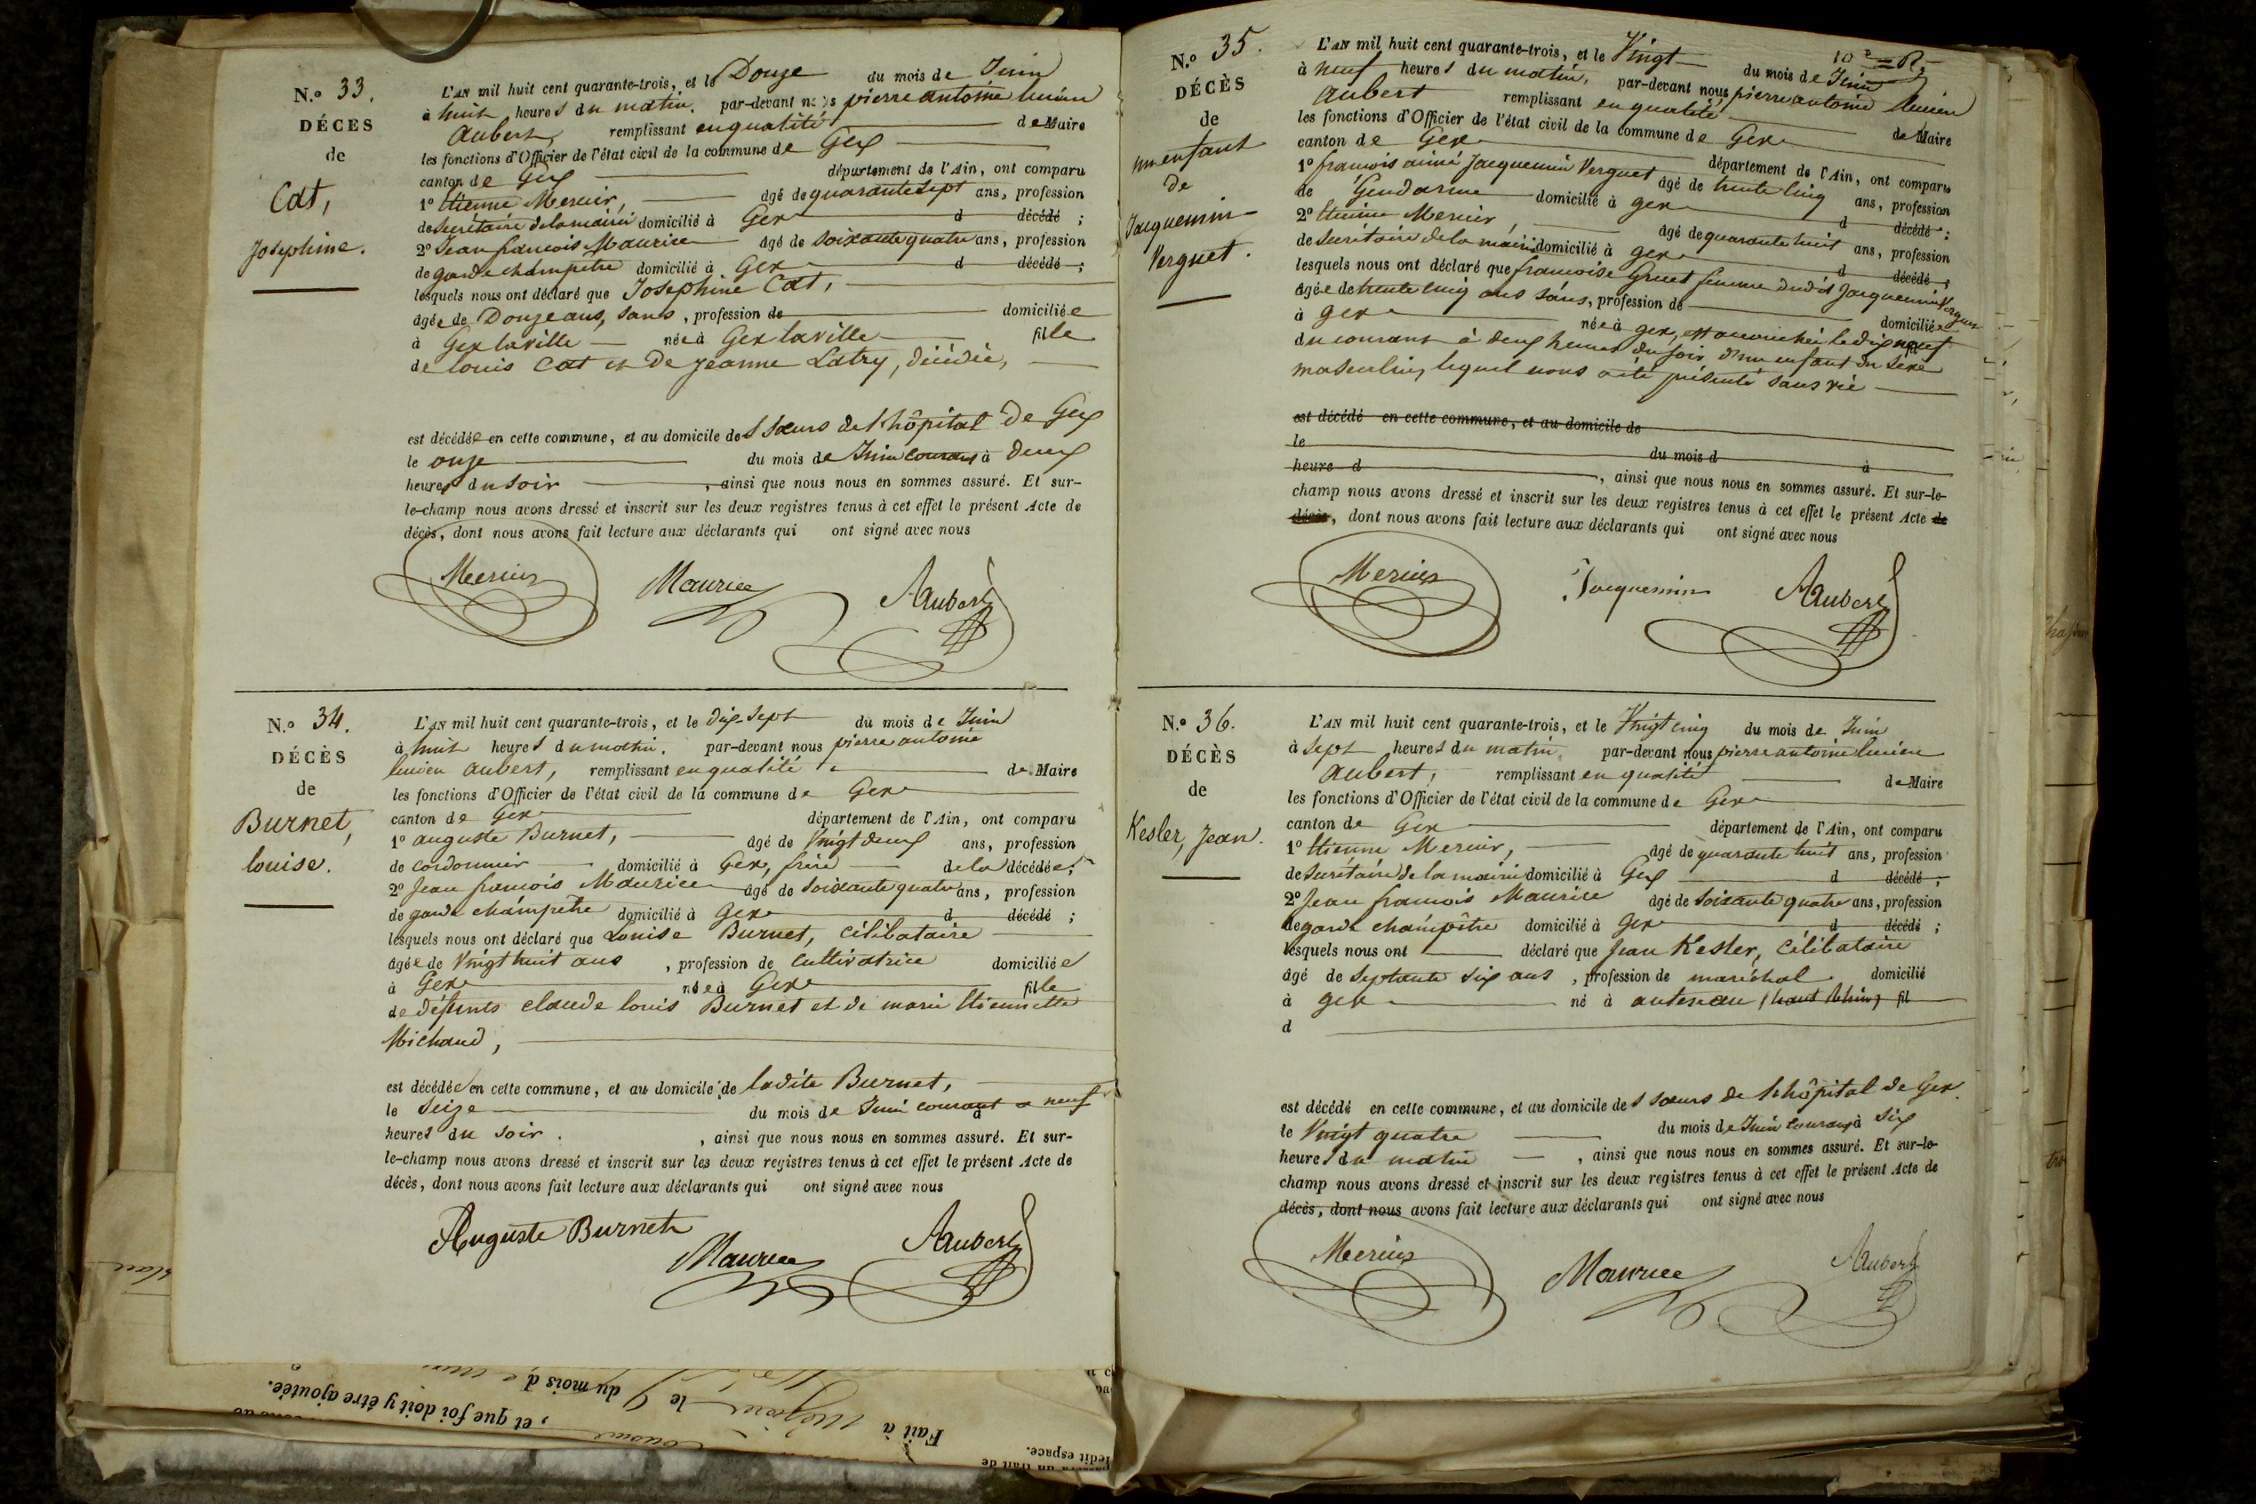 N.o 33.
DÉCÈS
de
Cat,
Josephine.
L'AN mil huit cent quarante-trois, et le Douze du mois de Juin
à huit heures du matin. par-devant nous pierre antoine lucien
Aubert, remplissant en qualité de Maire
les fonctions d'Officier de l'état civil de la commune de Gex
canton de Gex département de l'Ain, ont comparu
1o Etienne Mercier, âgé de quarante sept ans, profession
de secrétaire de la mairie domicilié à Gex d décédé ;
2o Jean françois Maurice âgé de soixante quatre ans, profession
de garde champêtre domicilié à Gex d décédé ;
lesquels nous ont déclaré que Josephine Cat,
âgée de Douze ans, sans, profession de domiciliée
à Gex la ville née à Gex la ville fille
de louis Cat et De jeanne Latry, décédée,
est décédée en cette commune, et au domicile des sœurs de l'hôpital De Gex
le onze du mois de Juin courant à deux
heures du soir, ainsi que nous nous en sommes assuré. Et sur-
le-champ nous avons dressé et inscrit sur les deux registres tenus à cet effet le présent Acte de
décès, dont nous avons fait lecture aux déclarants qui ont signé avec nous
Mercier Maurice Aubert
N.o 34.
DÉCÈS
de
Burnet,
louise.
L'AN mil huit cent quarante-trois, et le dix-sept du mois de Juin
à huit heures du matin. par-devant nous pierre antoine
lucien Aubert, remplissant en qualité de Maire
les fonctions d'Officier de l'état civil de la commune de Gex
canton de Gex département de l'Ain, ont comparu
1o auguste Burnet, âgé de Vingt deux ans, profession
de cordonnier domicilié à Gex, frère de la décédée ;
2o Jean françois Maurice âgé de soixante quatre ans, profession
de garde champêtre domicilié à Gex d décédé ;
lesquels nous ont déclaré que Louise Burnet, célibataire
âgée de Vingt huit ans, profession de cultivatrice domiciliée
à Gex née à Gex fille
de défunts claude louis Burnet et de marie Etiennette
Michaud,
est décédée en cette commune, et au domicile de ladite Burnet,
le seize du mois de Juin courant à neuf
heures du soir. , ainsi que nous nous en sommes assuré. Et sur-
le-champ nous avons dressé et inscrit sur les deux registres tenus à cet effet le présent Acte de
décès, dont nous avons fait lecture aux déclarants qui ont signé avec nous
Auguste Burnet Maurice Aubert
N.o 35.
DÉCÈS
de
un enfant
de
Jacquemin
Verguet.
L'AN mil huit cent quarante-trois, et le Vingt du mois de Juin
à neuf heures du matin, par-devant nous pierre antoine lucien
Aubert remplissant en qualité de Maire
les fonctions d'Officier de l'état civil de la commune de Gex
canton de Gex département de l'Ain, ont comparu
1o françois aimé Jacquemin Verguet âgé de trente cinq ans, profession
de Gendarme domicilié à gex d décédé ;
2o Etienne Mercier, âgé de quarante huit ans, profession
de secrétaire de la mairie domicilié à gex d décédé ;
lesquels nous ont déclaré que francoise Gruet femme dudit Jacquemin Verguet
âgée de trente cinq ans sans, profession de domiciliée
à gex née à gex, est accouchée le dix neuf
du courant à deux heures du soir d'un enfant du sexe
masculin, lequel nous a été présenté sans vie
est décédé en cette commune, et au domicile de
le du mois d à
heure d , ainsi que nous nous en sommes assuré. Et sur-le-
champ nous avons dressé et inscrit sur les deux registres tenus à cet effet le présent Acte de
décès, dont nous avons fait lecture aux déclarants qui ont signé avec nous
Mercier Jacquemin Aubert
N.o 36.
DÉCÈS
de
Kesler, Jean.
L'AN mil huit cent quarante-trois, et le Vingt cinq du mois de Juin
à sept heures du matin par-devant nous pierre antoine lucien
Aubert, remplissant en qualité de Maire
les fonctions d'Officier de l'état civil de la commune de Gex
canton de Gex département de l'Ain, ont comparu
1o Etienne Mercier, âgé de quarante huit ans, profession
de secrétaire de la mairie domicilié à Gex d décédé ;
2o Jean françois Maurice âgé de soixante quatre ans, profession
de garde champêtre domicilié à Gex d décédé ;
lesquels nous ont déclaré que Jean Kesler, célibataire
âgé de septante six ans, profession de maréchal domicilié
à gex né à autenau (haut Rhin) fil
d
est décédé en cette commune, et au domicile des sœurs de l'hôpital de Gex.
le Vingt quatre du mois de Juin courant à six
heures du matin , ainsi que nous nous en sommes assuré. Et sur-le-
champ nous avons dressé et inscrit sur les deux registres tenus à cet effet le présent Acte de
décès, dont nous avons fait lecture aux déclarants qui ont signé avec nous
Mercier Maurice Aubert
Fait à le du mois d
, et que foi doit y être ajoutée.
ledit espace.